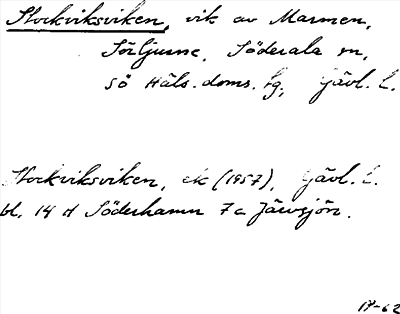 Stockviksviken, vik av Marmen,
Sörljusne, Söderala sn,
sö Häls. doms. fg, Gävl. l.
Stockviksviken, ek (1957), Gävl. l.
bl. 14 H Söderhamn 7 c Järvsjön.